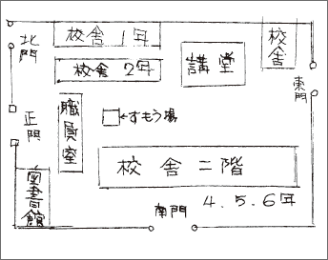 北門
校舎 1年
校舎 2年
講堂
校舎
東門
正門
職員室
すもう場
校舎 二階
4.5.6年
図書館
南門